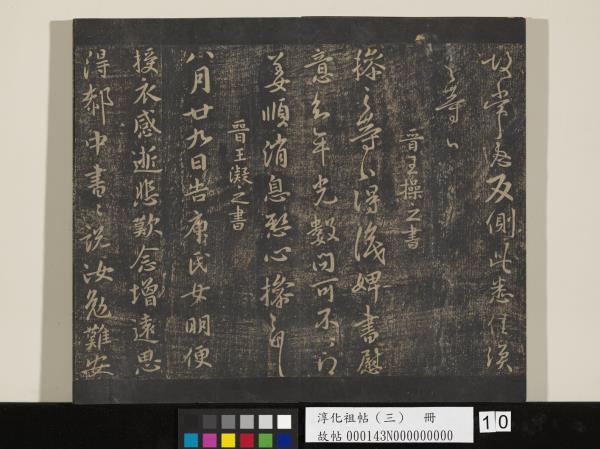 故常患反側此悉佳須
尋
晉王操之書
操之等得識婢書慰
意去年光數問可不々
姜順消息懸心操之
晉王凝之書
八月廿九日告庾氏女明便
授衣感逝悲歎念增遠思
得郗中書書說汝勉難安
淳化祖帖(三) 冊
故帖 000143N000000000
10